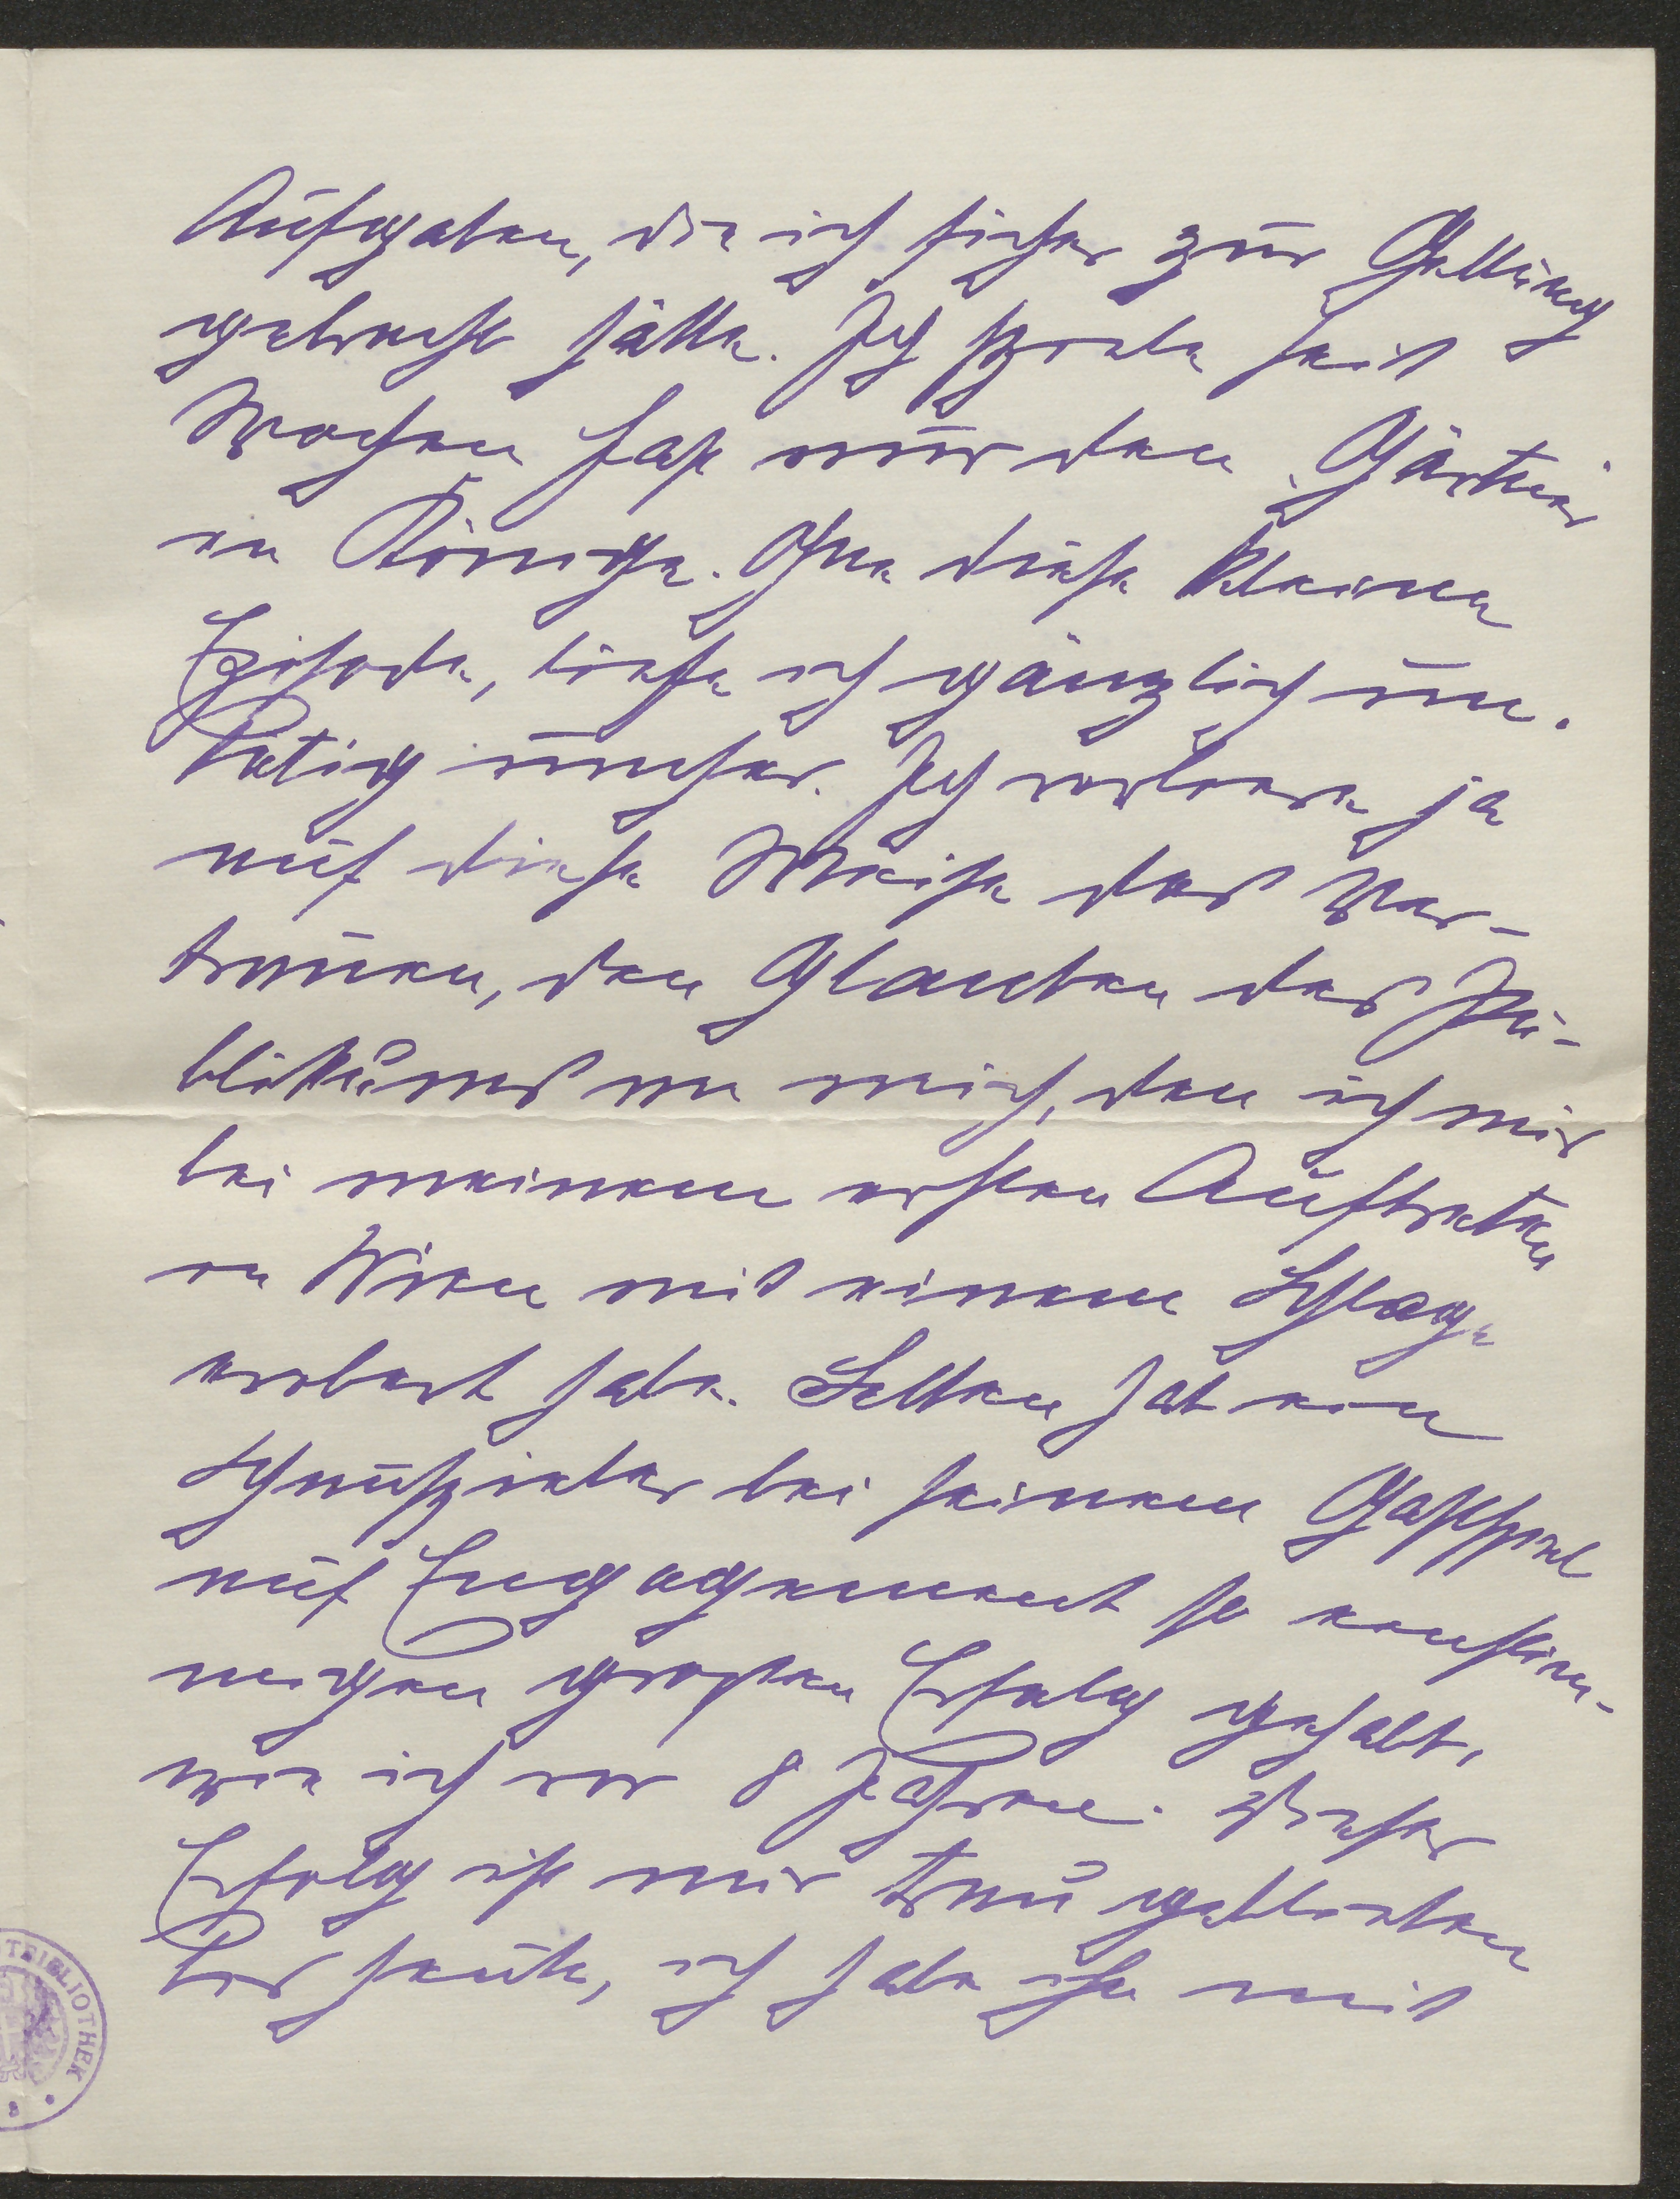 Aufgaben, die ich sicher zur Geltung
gebracht hätte. Ich spiele seit
Wochen fast nur den Gärtner
in Könige. Ohne diese kleine
Episode, liefe ich gänzlich un-
tätig umher. Ich verliere ja
auf diese Weise das Ver-
trauen, den Glauben des Pu-
blikums an mich, den ich mir
bei meinem ersten Auftreten
in Wien mit einem Schlage
erobert habe. Selten hat ein
Schauspieler bei seinem Gastspiel
auf Engagement so einstim-
migen großen Erfolg gehabt,
wie ich vor 8 Jahren. Dieser
Erfolg ist mir treu geblieben
bis heute, ich habe ihn mit
TBIBLIOTHEK